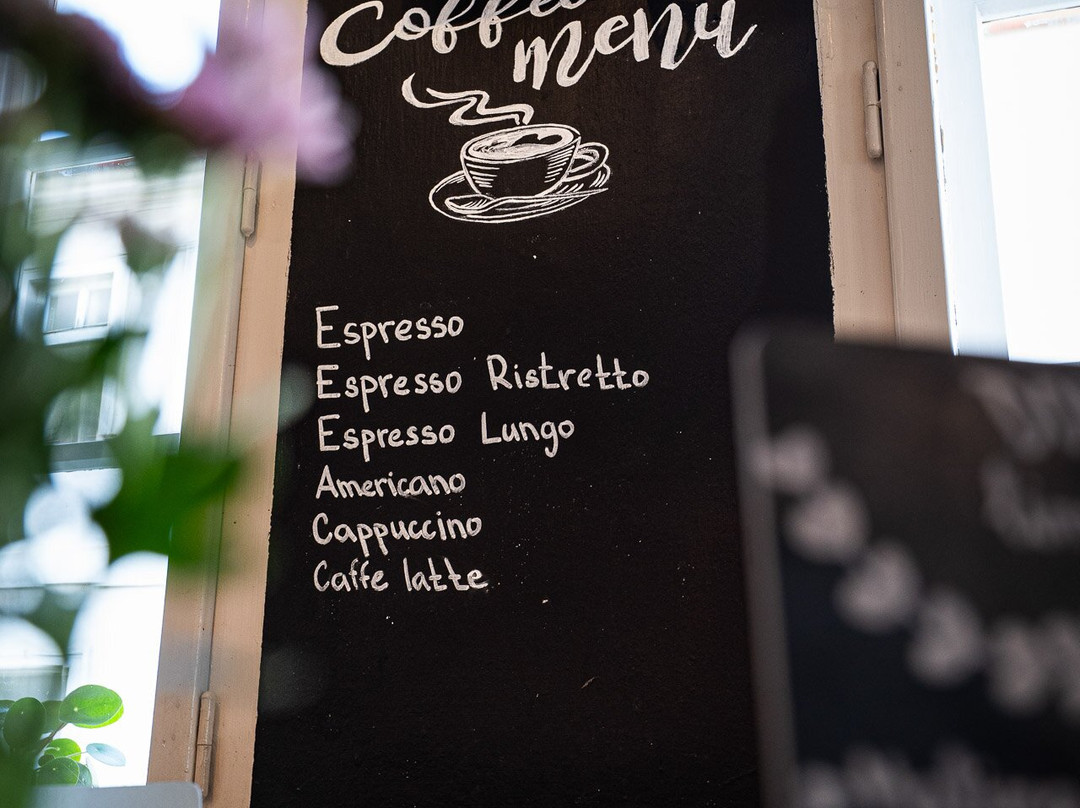 Coffee
menu
Espresso
Espresso Ristretto
Espresso Lungo
Americano
Cappuccino
Caffe latte